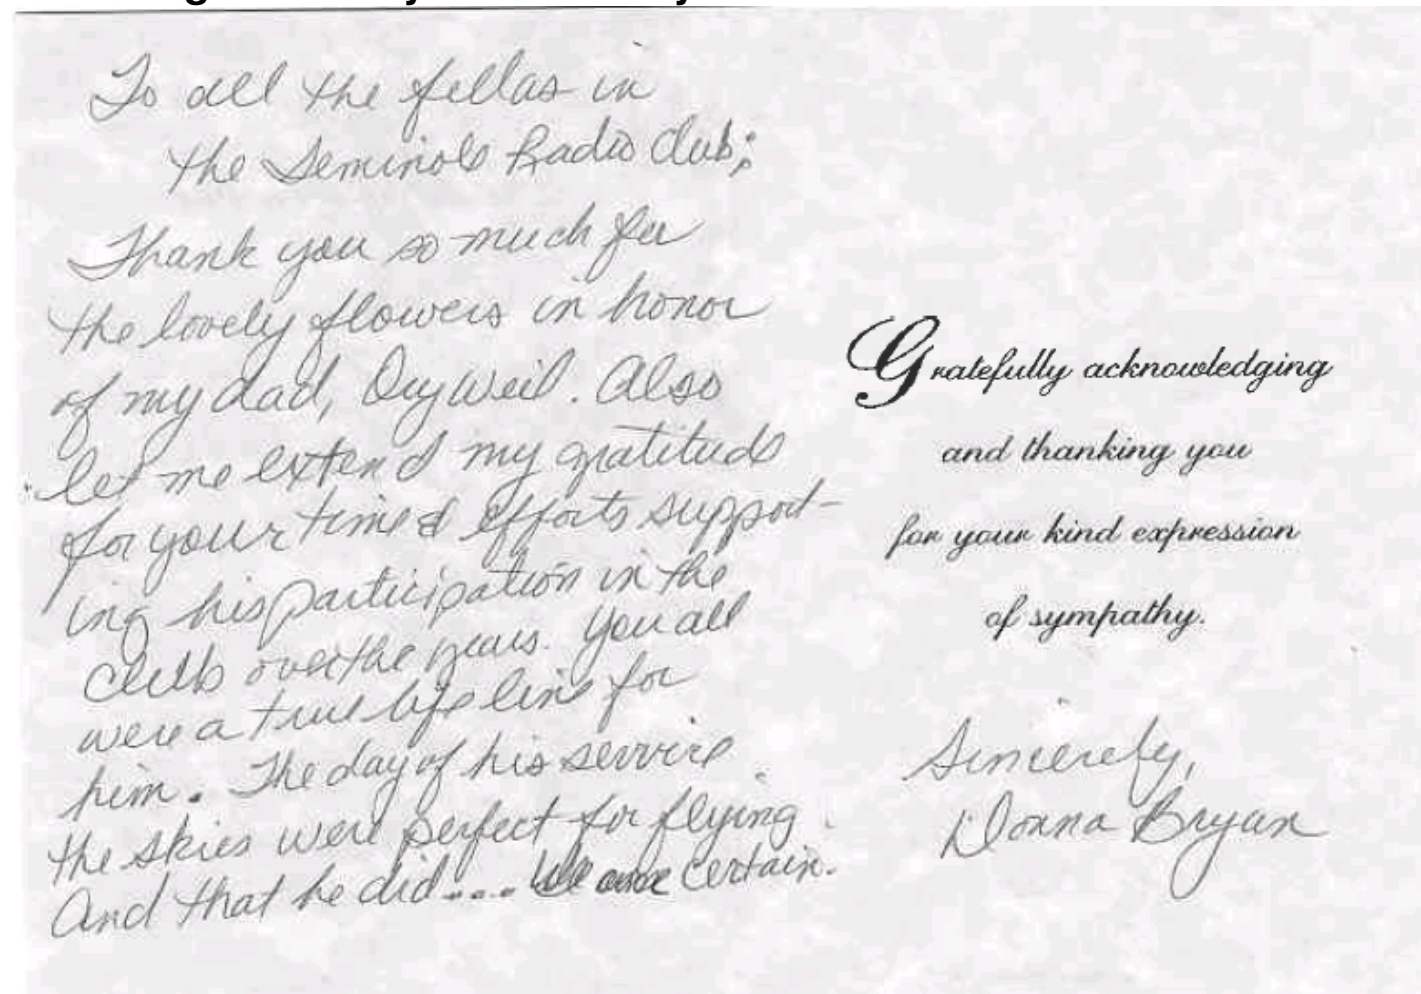 To all the fellas in
the Seminole Radio Club;
Thank you so much for
the lovely flowers in honor
of my dad, Weil. Also
let me extend my gratitude
for your time & efforts support-
ing his participation in the
club over the years. You all
were a true life line for
him. The day of his service
the skies were perfect for flying.
And that he did.... We are certain.
Gratefully acknowledging
and thanking you
for your kind expression
of sympathy.
Sincerely,
Donna Bryan